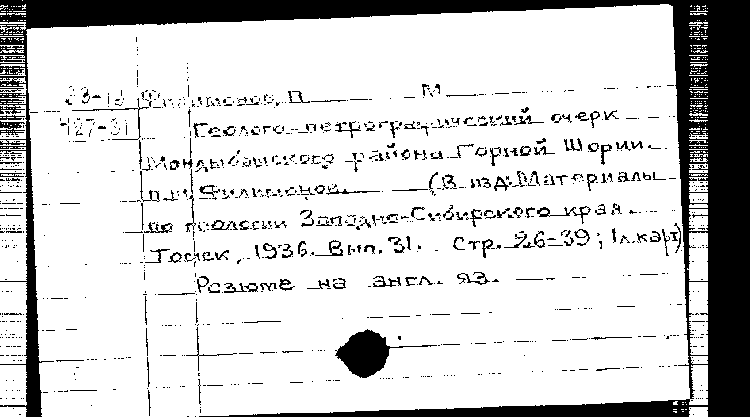 Филимонов, П. М.
427-31
Геолого-петрографический очерк
Мондыбашского района Горной Шории.
П.М. Филимонов. (В изд: Материалы
по геологии Западно-Сибирского края.
Томск, 1936. Вып. 31. Стр. 26-39; 1 л. карт)
Резюме на англ. яз.